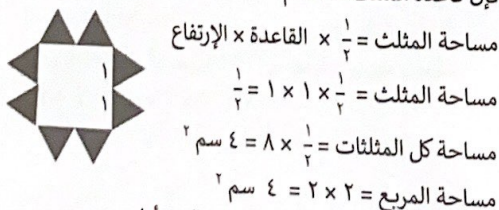 مساحة المثلث = ١/٢ × القاعدة × الإرتفاع
مساحة المثلث = ١/٢ × ١ × ١ = ١/٢
مساحة كل المثلثات = ١/٢ × ٨ = ٤ سم ٢
مساحة المربع = ٢ × ٢ = ٤ سم ٢
١
١